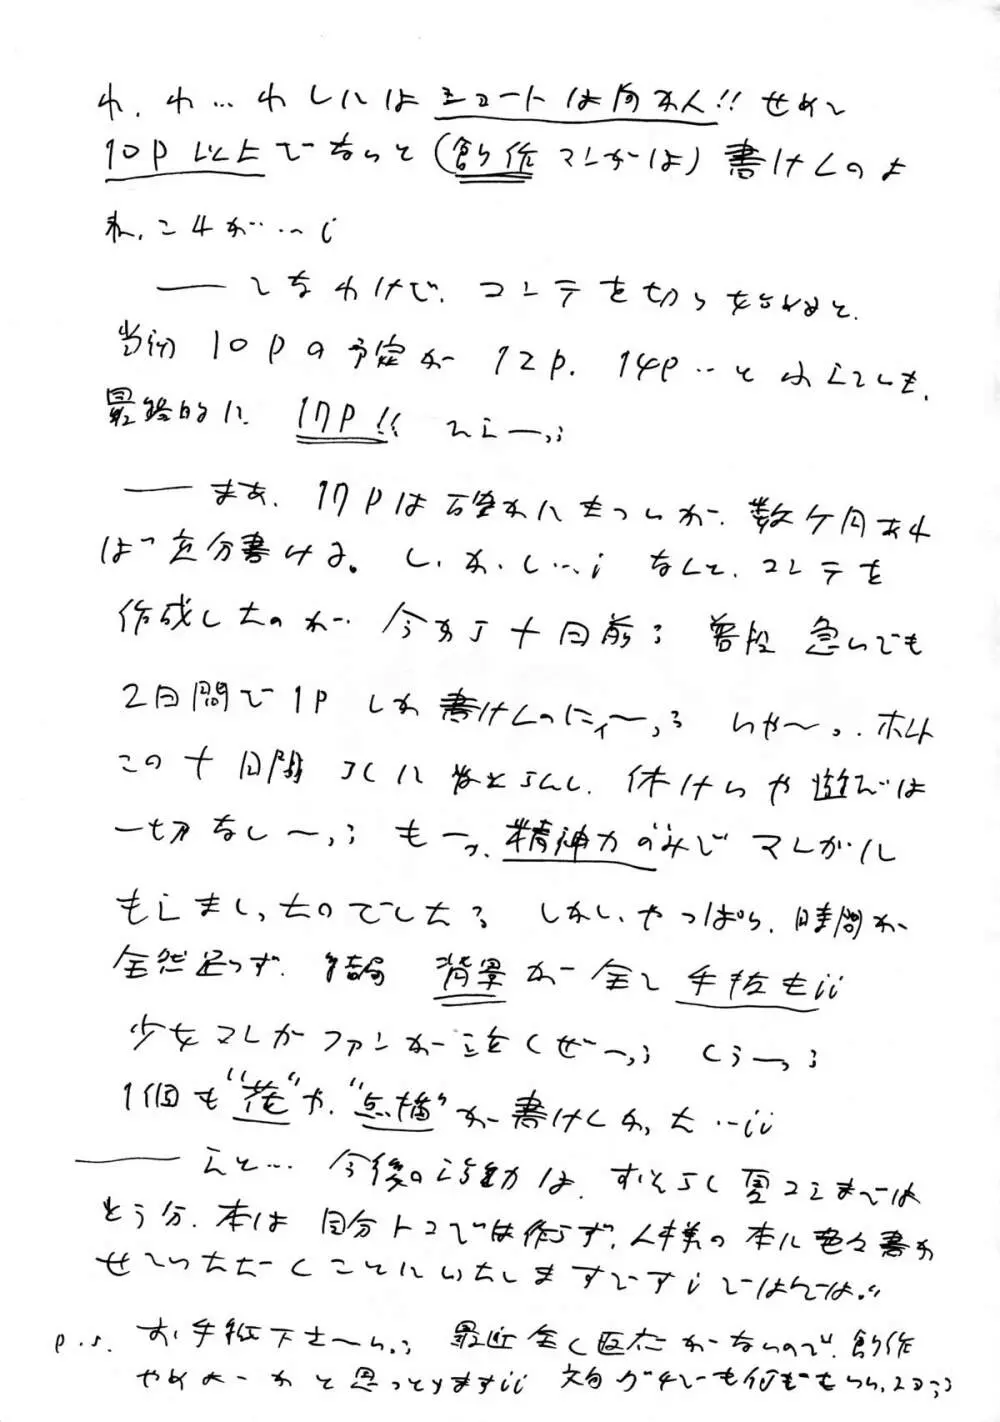 わ、わ…わしにはショートは向かん!! せめて
10P以上でないと(創作マンガは)書けんのよ
ね、これが…;
——てなわけで、コンテを切り始めると、
当初10Pの予定が12P、14P…とふえていき、
最終的に、17P!!
——まあ、17Pは確かにきついが、数ケ月あれ
ば充分書ける。し、か、し…; なんと、コンテを
作成したのが、今から十日前; 普段急いでも
2日間で1Pしか書けんのにィ〜っ; いや〜っ、ホント
この十日間ろくに寝とらんし、休けいや遊びは
一切なし〜っ; もーっ、精神力のみでマンガに
しかし、やっぱり、時間が
全然足らず、結局 背景が全て手抜き;;
少女マンガファンが泣くぜーっ; くうーっ;
1個も“花”や“点描”が書けんかった…;;
——えと… 今後の活動は、おそらく夏コミまでは
とう分、本は自分トコでは作らず、人様の本に色々書か
せていただくことにいたしますです; ではでは。
P.S. お手紙下さ〜い; 最近全く反応がないので、創作
やめよーかと思っとります;;